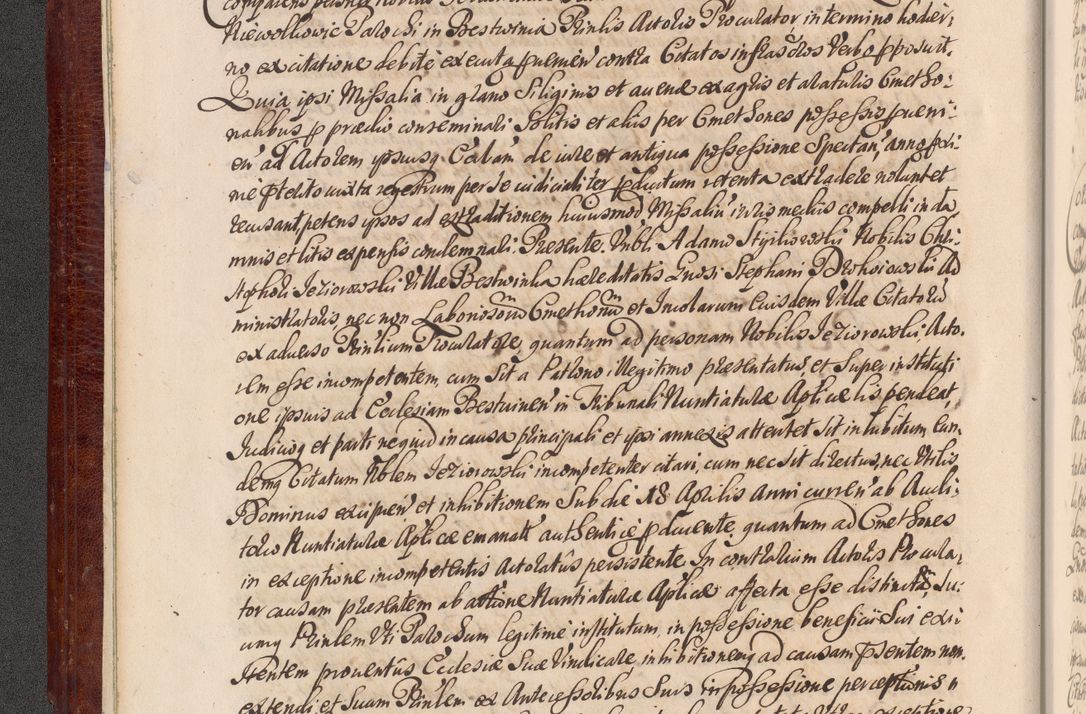 Niewolkowic Parochi in Bestwinia Prinlis Actoris Procurator in termino hodier,
no ex citatione debite executa provenien contra Citatos infrascros Verbo pposuit.
Quia ipsi Missalia in grano Siliginis et avenæ ex agris et araturis Cmetho:
nalibus p prædio conseminali Politis et aliis per Cmethones possessis proveni:
en ad Actorem ipsiusq Eccliam de iure et antiqua possessione Spectan, anno proxi:
me pterito iuxta regestrum per se iudicialiter pductum retenta extradere nolunt et
recusant petens ipsos ad extraditionem huiusmodi Missaliu iuris mediis compelli in da,
mnis et litis expensis condemnari. Presente Nbli Adamo Styrliorowski Nobilis Chri:
stophori Jeziorowski Villæ Bestwinka hæreditatis Gnosi Stephani Drohoiowski Ad
ministratoris, nec non Laboriosorum Cmethonum et Incolarum Eiusdem Villæ Citatoru
ex adverso Prinlium Procuratore, quantum ad personam Nobilis Jeziorowski, Acto,
rem esse incompetentem, cum Sit a Patrono illegitimo præsentatus, et Super instituti
one ipsius ad Ecclesiam Bestwinen in Tribunali Nuntiaturæ Aplicæ lis pendeat,
Judiciuq et parti ne quid in causa principali et ipsi annexis attentet Sit inhibitum Ean,
demq Citatum Nblem Jeziorowski incompetenter citari, cum nec sit directus, nec Utilis
Dominus excipien et inhibitionem Sub die 18 Aprilis Anni curren ab Audi,
torio Nuntiaturæ Aplicæ emanata authentice pducente, quantum ad Cmethones
in exceptione incompetentis Actoratus persistente. In contrarium Actoris Procura,
tor causam præsentem ab actione Nuntiaturæ Aplicæ affecta esse distincta Su:
umq Prinlem Uti Parochum legitime institutum, in possessione beneficii Sui exi:
stentem proventus Ecclesiæ Suæ Vindicare inhibitionemq ad causam psentem non
extendi, et Suum Prinlem ex Antecessoribus Suis in possessione perceptionis